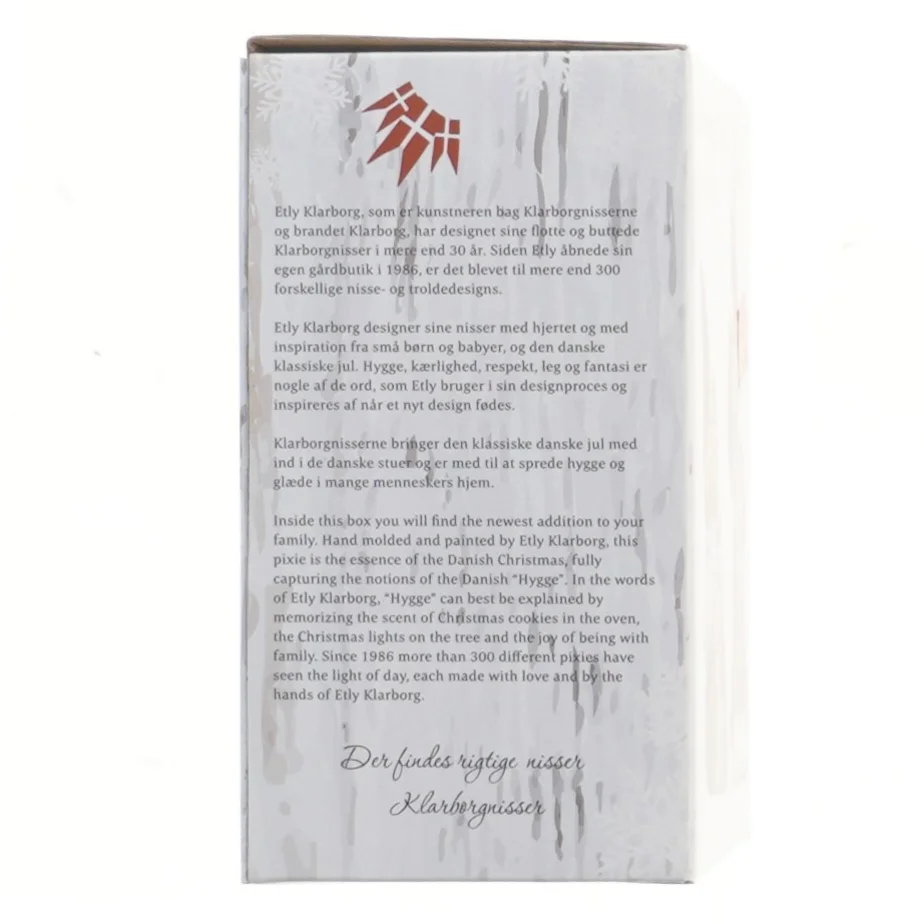 Etly Klarborg, som er kunstneren bag Klarborgnisserne
og brandet Klarborg, har designet sine flotte og buttede
Klarborgnisser i mere end 30 år. Siden Etly åbnede sin
egen gårdbutik i 1986, er det blevet til mere end 300
forskellige nisse- og troldedesigns.
Etly Klarborg designer sine nisser med hjertet og med
inspiration fra små børn og babyer, og den danske
klassiske jul. Hygge, kærlighed, respekt, leg og fantasi er
nogle af de ord, som Etly bruger i sin designproces og
inspireres af når et nyt design fødes.
Klarborgnisserne bringer den klassiske danske jul med
ind i de danske stuer og er med til at sprede hygge og
glæde i mange menneskers hjem.
Inside this box you will find the newest addition to your
family. Hand molded and painted by Etly Klarborg, this
pixie is the essence of the Danish Christmas, fully
capturing the notions of the Danish “Hygge”. In the words
of Etly Klarborg, “Hygge” can best be explained by
memorizing the scent of Christmas cookies in the oven,
the Christmas lights on the tree and the joy of being with
family. Since 1986 more than 300 different pixies have
seen the light of day, each made with love and by the
hands of Etly Klarborg.
Der findes rigtige nisser
Klarborgnisser